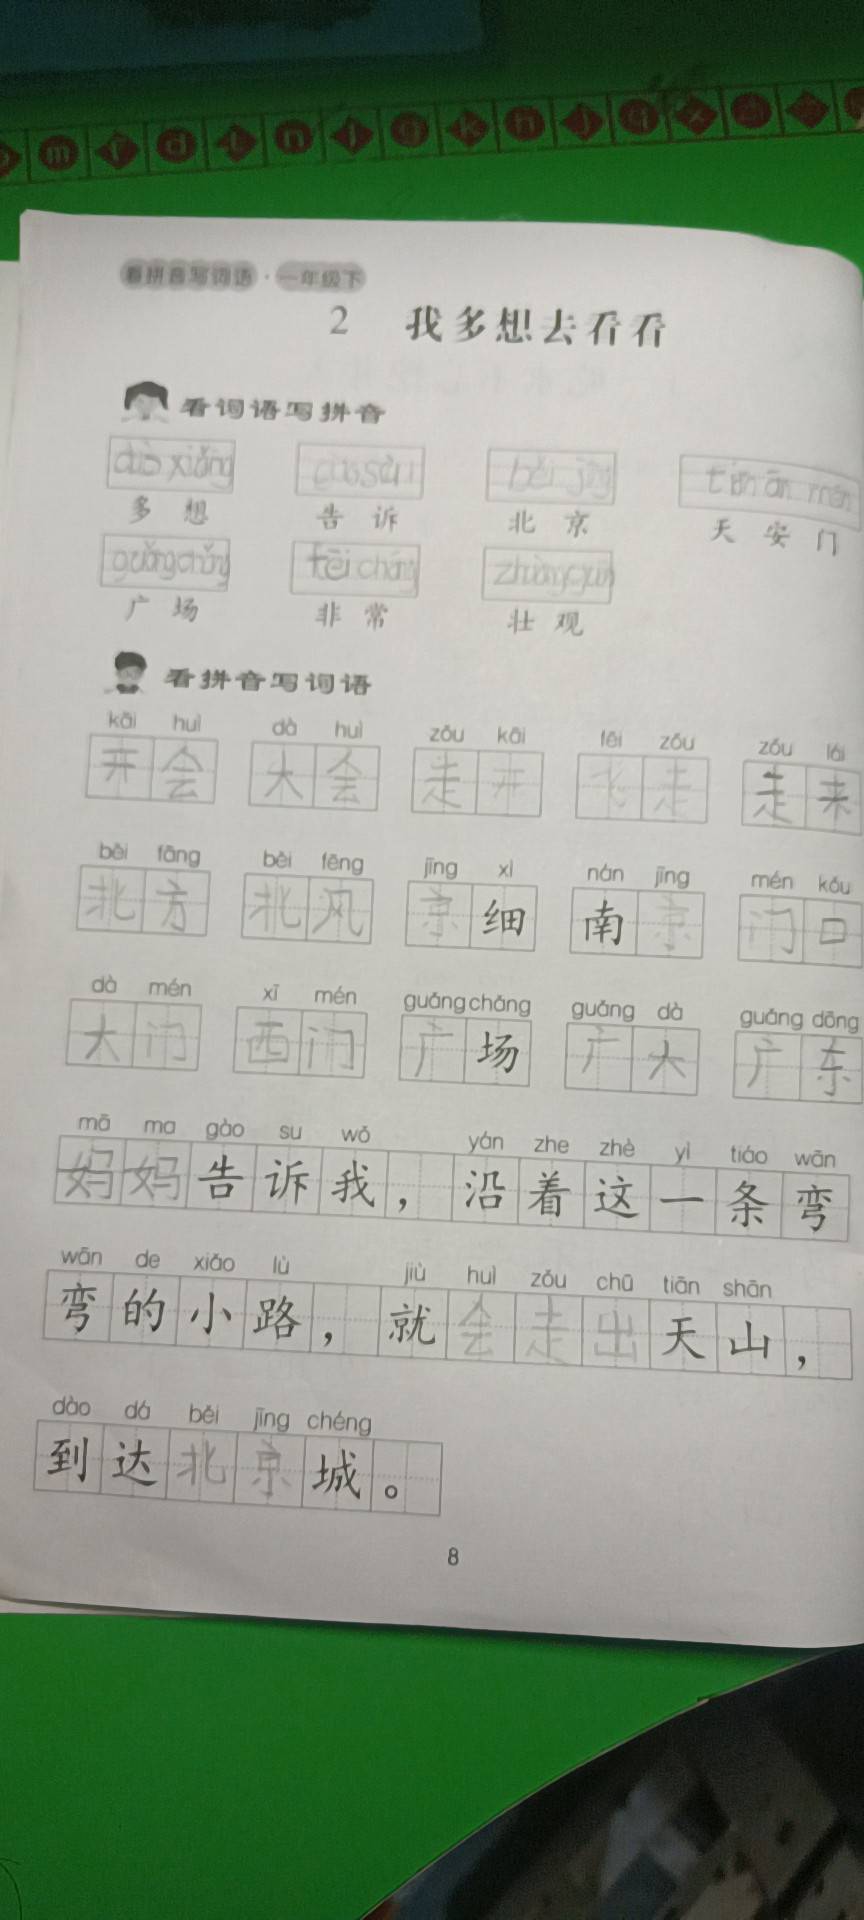 m f d t n l g k h j q x
看拼音写词语·一年级下
2 我多想去看看
看词语写拼音
duō xiǎng běi jīng tiān ān mén
多想 告诉 北京 天安门
guǎngchǎng fēicháng
广场 非常 壮观
看拼音写词语
kāi huì dà huì zǒu kāi fēi zǒu zǒu lái
开会 大会 走开 飞走 走来
běi fāng běi fēng jīng xì nán jīng mén kǒu
北方 北风 京细 南京 门口
dà mén xī mén guǎng chǎng guǎng dà guǎng dōng
大门 西门 广场 广大 广东
mā ma gào su wǒ yán zhe zhè yì tiáo wān
妈妈告诉我，沿着这一条弯
wān de xiǎo lù jiù huì zǒu chū tiān shān
弯的小路，就会走出天山，
dào dá běi jīng chéng
到达北京城。
8